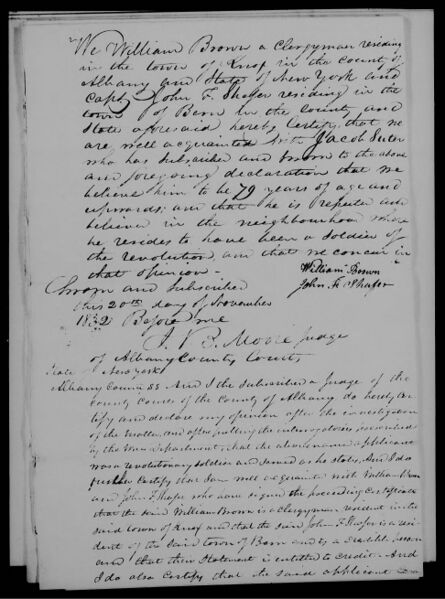 We William Brown a Clergyman residing
in the town of Knox in the county of
Albany and State of New York and
Capt John F. Shafer residing in the
town of Bern in the county and
State aforesaid, hereby Certify, that we
are well acquainted with Jacob Suter
who has subscribed and sworn to the above
and foregoing declaration that we
believe him to be 79 years of age and
upwards; and that he is reputed and
believed in the neighbourhood where
he resides to have been a soldier of
the revolution, and that we concur in
that opinion -
William Brown
John F. Shafer
Sworn and Subscribed
this 20th day of November
1832 Before me
J. V. B. Moore Judge
of Albany County Courts
State of New York
Albany County SS. And I the Subscribed a Judge of the
County Courts of the County of Albany do hereby
Certify and declare my opinion after the investigation
of the matter, and after putting the interrogatories prescribed
by the War Department, that the above named applicant
was a revolutionary soldier and served as he states, And I do
further Certify that I am well acquainted with William Brown
and John F. Shafer who have signed the preceeding Certificate
that the said William Brown is a Clergyman resident in the
said town of Knox and that the said John F. Shafer is a resi-
dent of the said town of Bern and is a Credible person
and that their Statement is entitled to credit. And
I do also Certify that the said applicant